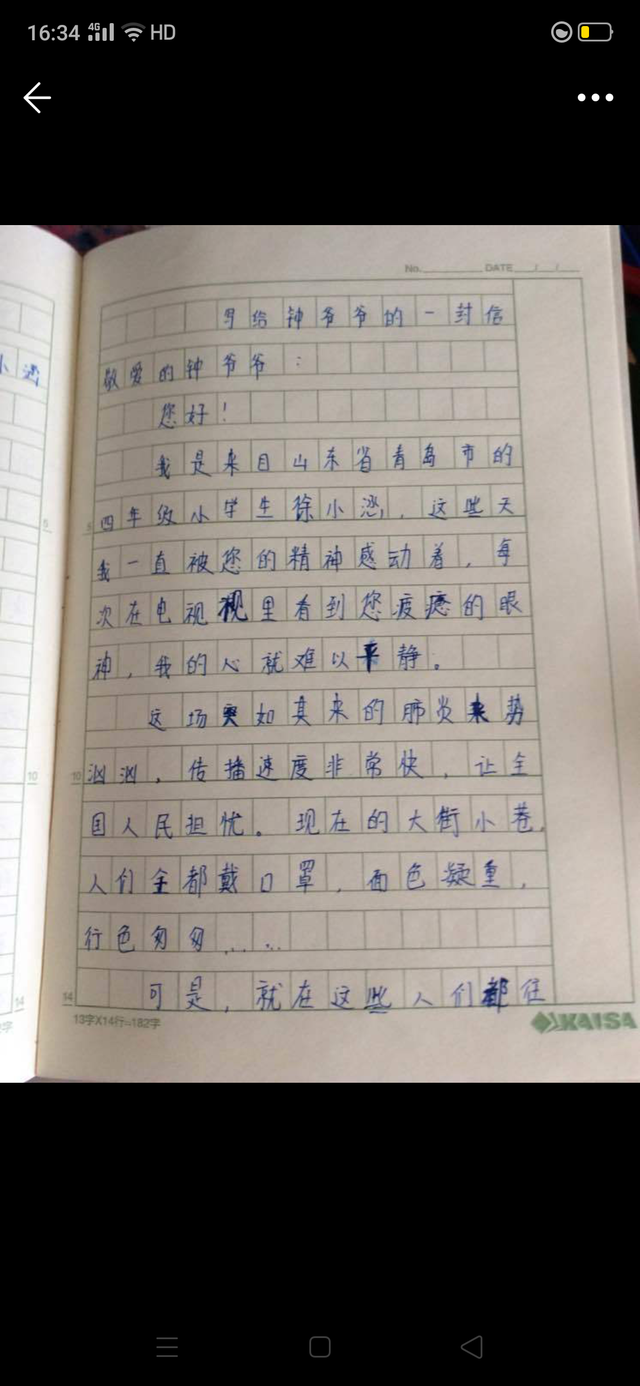 16:34 4G HD
No. DATE / /
写给钟爷爷的一封信
敬爱的钟爷爷：
您好！
我是来自山东省青岛市的
四年级小学生徐小，这些天
我一直被您的精神感动着，每
次在电视视里看到您疲惫的眼
神，我的心就难以平静。
这场突如其来的肺炎来势
汹汹，传播速度非常快，让全
国人民担忧。现在的大街小巷，
人们全都戴口罩，面色凝重，
行色匆匆……
可是，就在这些人们都往
5
10
10
14
14
13字X14行=182字
KAISA